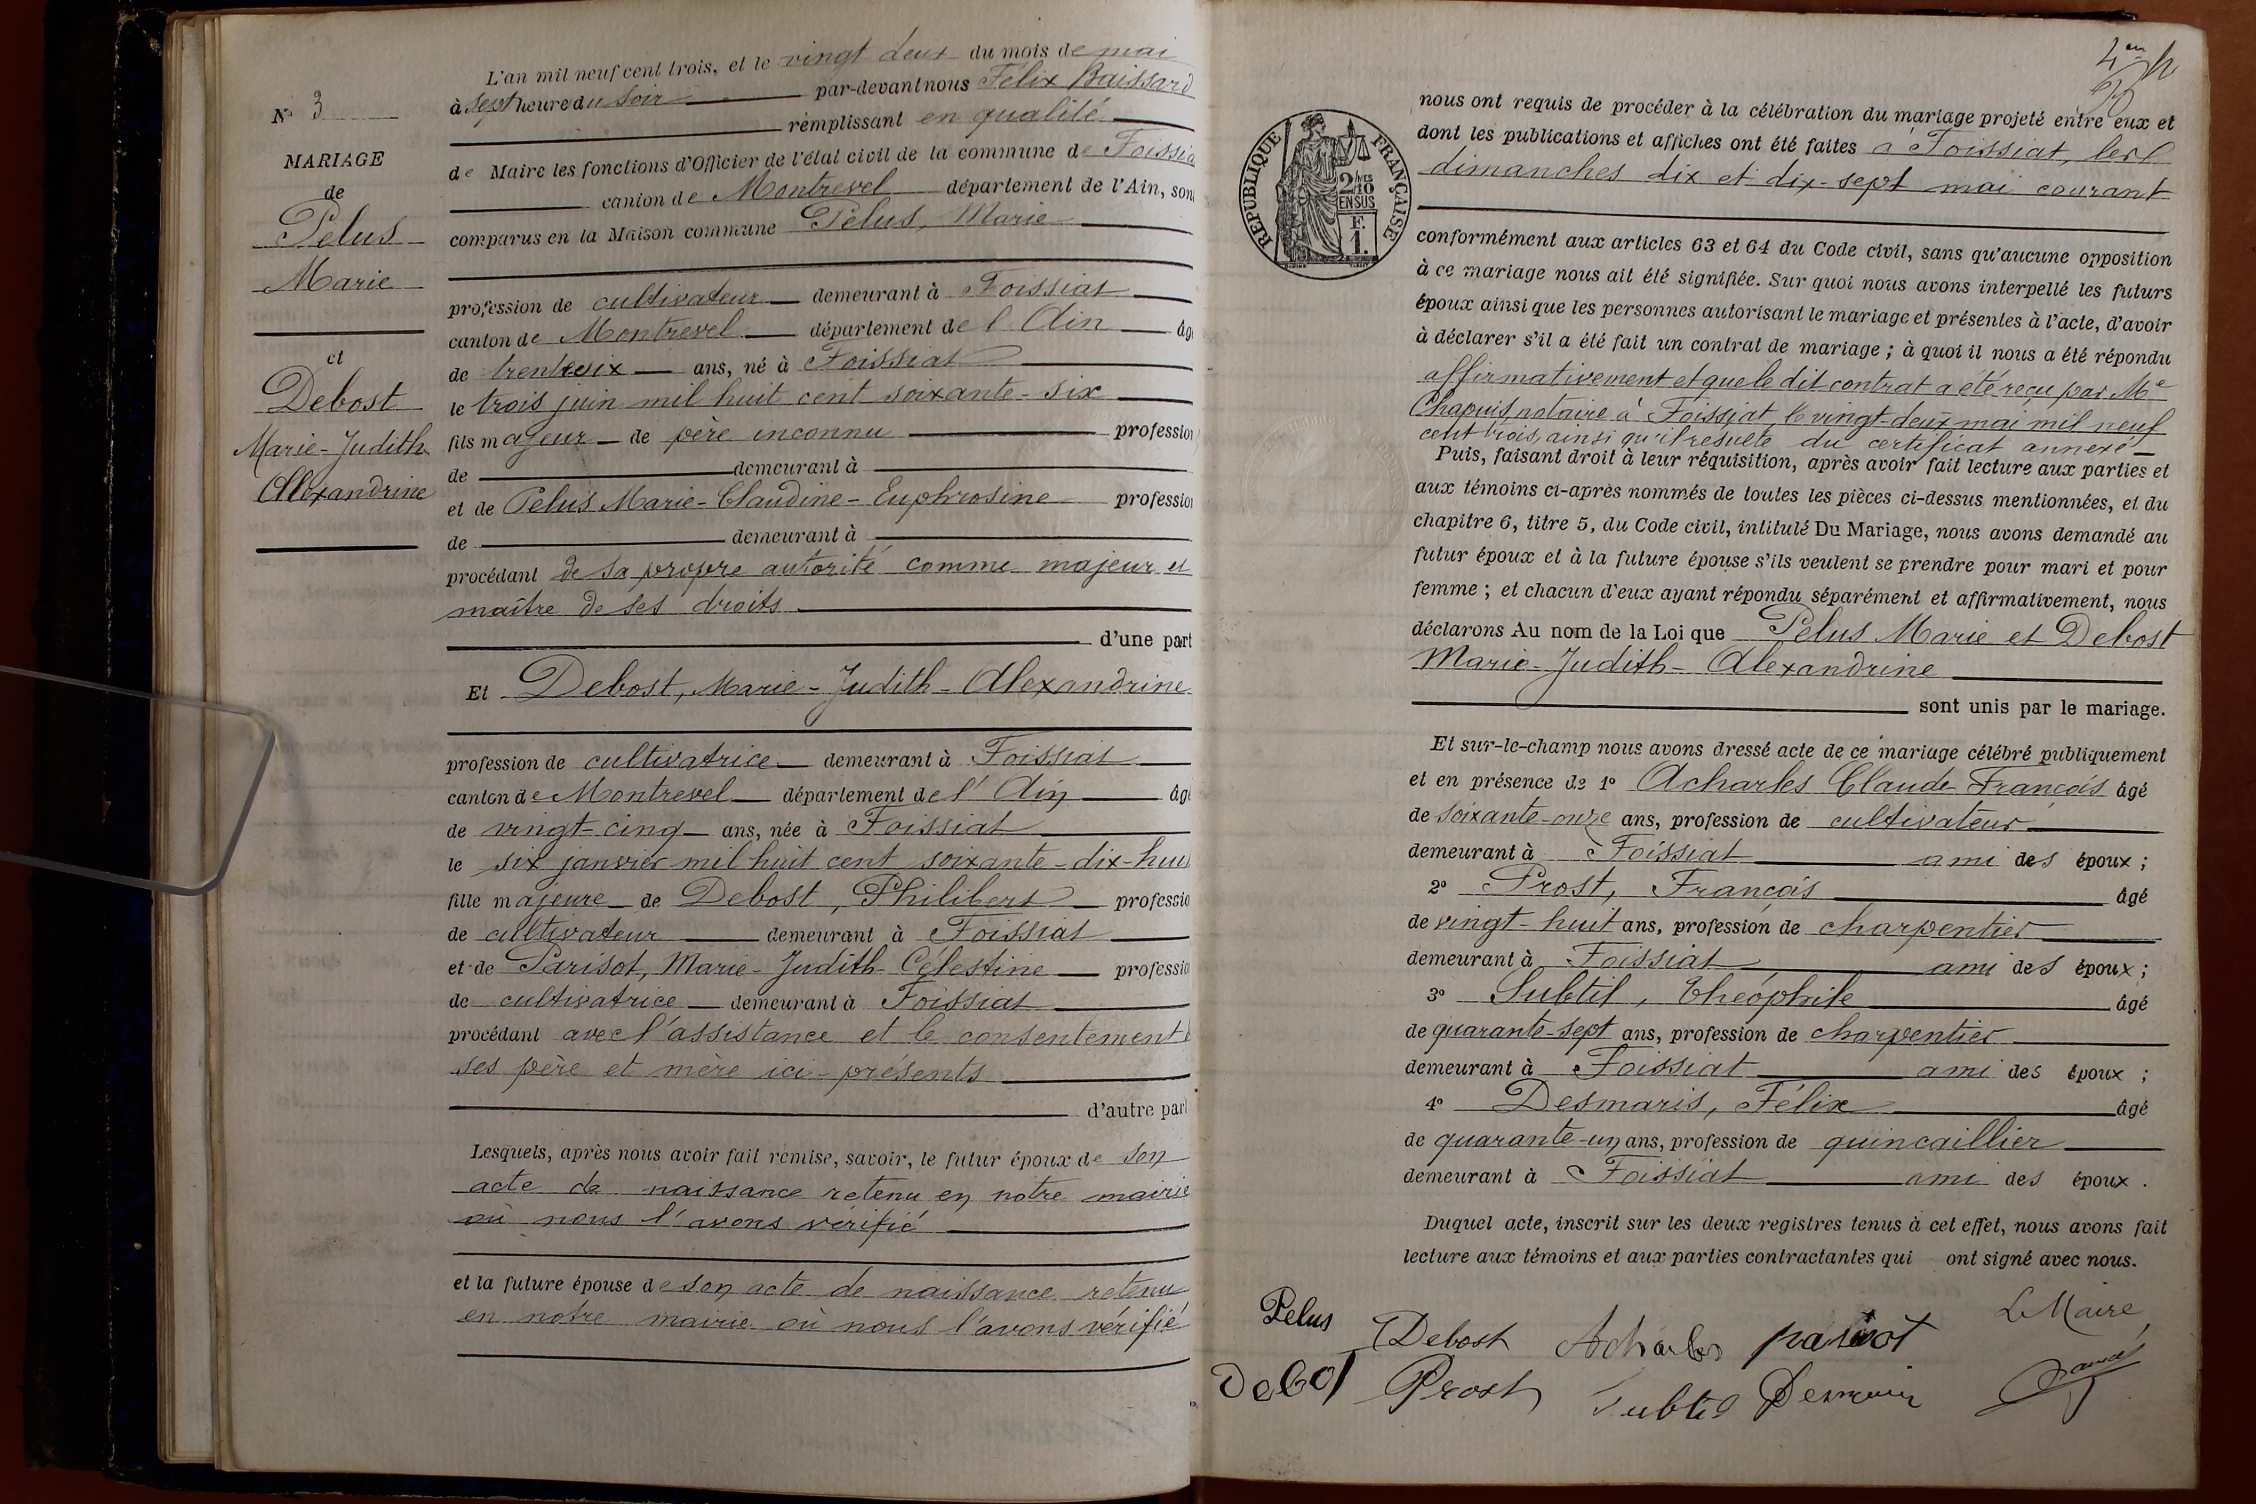 N° 3
MARIAGE
de
Pelus
Marie
et
Debost
Marie-Judith
Alexandrine
L'an mil neuf cent trois, et le vingt deux du mois de mai
à sept heure du soir par-devant nous Félix Baissard
remplissant en qualité
de Maire les fonctions d'Officier de l'état civil de la commune de Foissia
canton de Montrevel département de l'Ain, son
comparus en la Maison commune Pelus, Marie
profession de cultivateur demeurant à Foissiat
canton de Montrevel département de l'Ain âg
de trente six ans, né à Foissiat
le trois juin mil huit cent soixante-six
fils majeur de père inconnu profession
de demeurant à
et de Pelus Marie-Claudine-Euphrosine profession
de demeurant à
procédant de sa propre autorité comme majeur et
maître de ses droits
d'une part
Et Debost, Marie-Judith-Alexandrine
profession de cultivatrice demeurant à Foissiat
canton de Montrevel département de l'Ain âgé
de vingt-cinq ans, née à Foissiat
le six janvier mil huit cent soixante-dix-hui
fille majeure de Debost, Philibert professio
de cultivateur demeurant à Foissiat
et de Parisot, Marie-Judith-Célestine professio
de cultivatrice demeurant à Foissiat
procédant avec l'assistance et le consentement
ses père et mère ici-présents
d'autre part
Lesquels, après nous avoir fait remise, savoir, le futur époux de son
acte de naissance retenu en notre mairie
où nous l'avons vérifié
et la future épouse de son acte de naissance retenu
en notre mairie où nous l'avons vérifié
RÉPUBLIQUE FRANÇAISE
2/10
EN SUS
F.
1.
nous ont requis de procéder à la célébration du mariage projeté entre eux et
dont les publications et affiches ont été faites à Foissiat, les
dimanches dix et dix-sept mai courant
conformément aux articles 63 et 64 du Code civil, sans qu'aucune opposition
à ce mariage nous ait été signifiée. Sur quoi nous avons interpellé les futurs
époux ainsi que les personnes autorisant le mariage et présentes à l'acte, d'avoir
à déclarer s'il a été fait un contrat de mariage ; à quoi il nous a été répondu
affirmativement et que le dit contrat a été reçu par Me
Chapuis notaire à Foissiat, le vingt-deux mai mil neuf
cent trois, ainsi qu'il résulte du certificat annexé
Puis, faisant droit à leur réquisition, après avoir fait lecture aux parties et
aux témoins ci-après nommés de toutes les pièces ci-dessus mentionnées, et du
chapitre 6, titre 5, du Code civil, intitulé Du Mariage, nous avons demandé au
futur époux et à la future épouse s'ils veulent se prendre pour mari et pour
femme ; et chacun d'eux ayant répondu séparément et affirmativement, nous
déclarons Au nom de la Loi que Pelus Marie et Debost
Marie-Judith-Alexandrine
sont unis par le mariage.
Et sur-le-champ nous avons dressé acte de ce mariage célébré publiquement
et en présence de 1° Acharles Claude François âgé
de soixante-onze ans, profession de cultivateur
demeurant à Foissiat ami des époux ;
2° Prost, François âgé
de vingt-huit ans, profession de charpentier
demeurant à Foissiat ami des époux ;
3° Subtil, Théophile âgé
de quarante-sept ans, profession de charpentier
demeurant à Foissiat ami des époux ;
4° Desmaris, Félix âgé
de quarante-un ans, profession de quincaillier
demeurant à Foissiat ami des époux .
Duquel acte, inscrit sur les deux registres tenus à cet effet, nous avons fait
lecture aux témoins et aux parties contractantes qui ont signé avec nous.
Pelus Debost Acharles parisot Le Maire
Debost Prost Subtil Desmaris